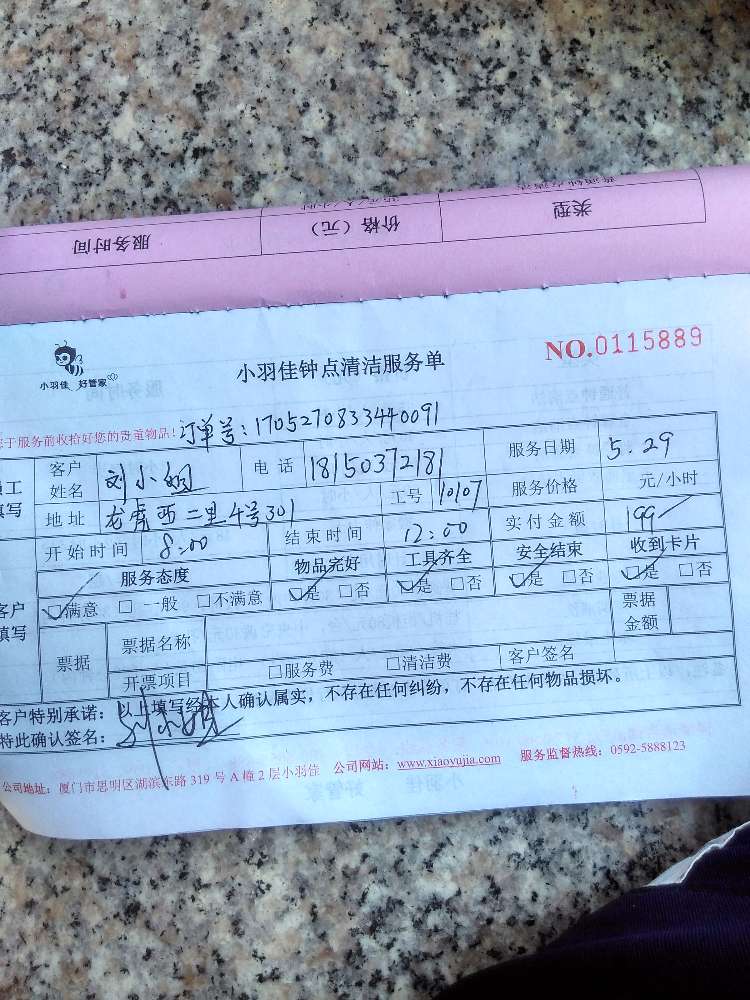 普通钟点清洁
类型 价格（元） 服务时间
小羽佳 好管家
小羽佳钟点清洁服务单
NO.0115889
于服务前收拾好您的贵重物品！ 订单号：1705270833440091
员工填写
客户姓名 刘小姐 电话 18150372181 服务日期 5.29
地址 龙虎西二里4号301 工号 10107 服务价格 元/小时
开始时间 8:00 结束时间 12:00 实付金额 199
客户填写
服务态度 物品完好 工具齐全 安全结束 收到卡片
☑满意 □一般 □不满意 ☑是 □否 ☑是 □否 ☑是 □否 ☑是 □否
票据 票据名称 票据金额
开票项目 □服务费 □清洁费 客户签名
客户特别承诺：以上填写经本人确认属实，不存在任何纠纷，不存在任何物品损坏。
特此确认签名：
公司地址：厦门市思明区湖滨东路319号A幢2层小羽佳 公司网站：www.xiaoyujia.com 服务监督热线：0592-5888123